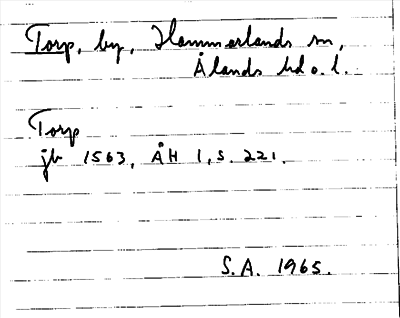 Torp, by, Hammarlands sn,
Ålands hd o. l.
Torp
jb 1563, ÅH 1, s. 221.
S.A. 1965.